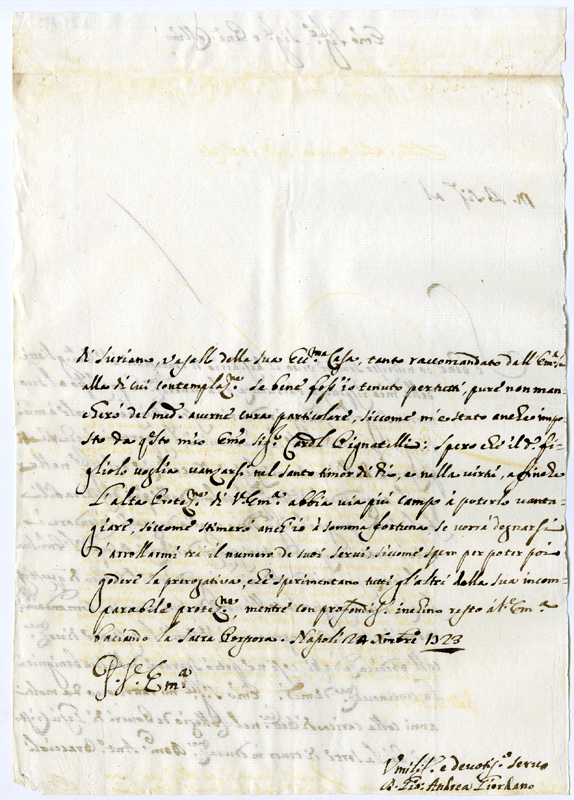 di Suriano, Vasall della Sua Ecc.ma Casa, tanto raccomandato dall'Em.
alla di cui contemplaz.ne se bene foss'io tenuto per tutti, pure non man-
cherò del med.o averne cura particolare, siccome m'è stato anche impo
sto da q.sto mio Em.o Sig.r Cardl Pignatelli: Spero che il d.o fi-
gliolo voglia avanzarsi nel santo timor di Dio, e nella virtù, affinche
l'alta Protez.ne di V.Em.a abbia via più campo à poterlo vanta-
giare, siccome stimerò anch'io à somma fortuna se vorrà degnarsi
d'arrollarmi trà il numero de suoi servi, siccome spero per poter poi
godere la prerogativa, che sperimentano tutti gl'altri della sua incom-
parabile protez.ne mentre con profondiss. inchino resto à V.Em.a
baciando la Sacra Porpora. Napoli 24 Xmbre 1723
Di V.Em.a
Umiliss.o e devotiss.o servo
D. Gio: Andrea Giordano